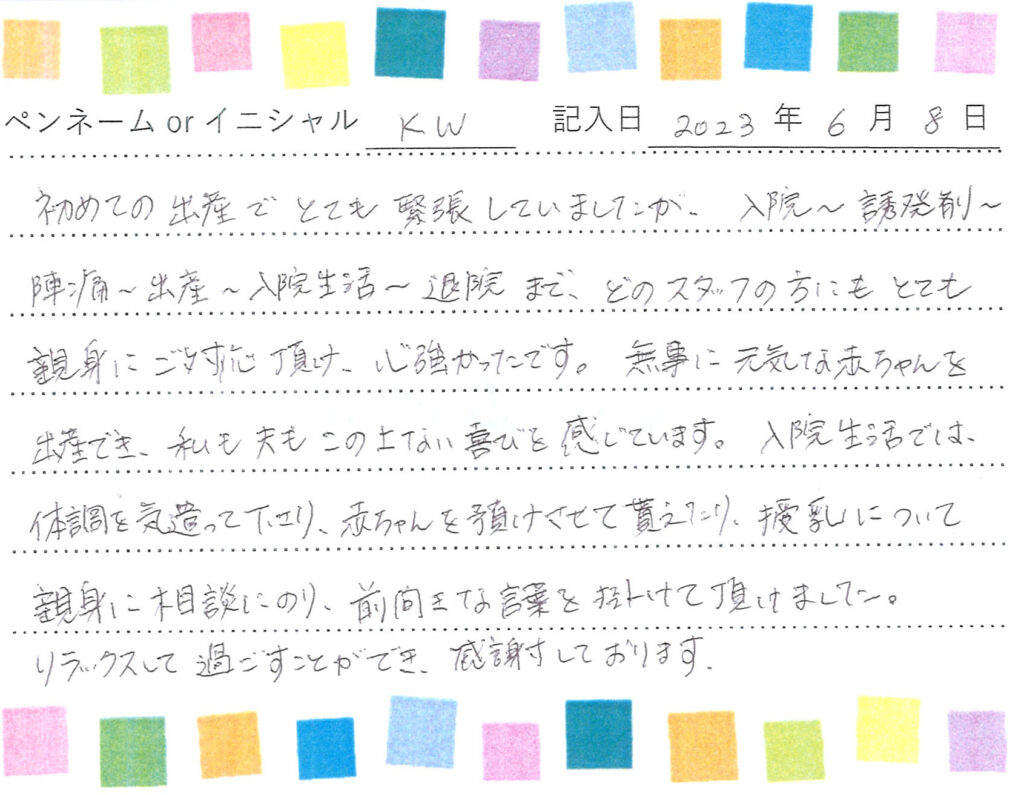 ペンネーム or イニシャル KW 記入日 2023 年 6 月 8 日
初めての出産でとても緊張していましたが、入院～誘発剤～
陣痛～出産～入院生活～退院まで、どのスタッフの方にもとても
親身にご対応頂け、心強かったです。無事に元気な赤ちゃんを
出産でき、私も夫もこの上ない喜びを感じています。入院生活では、
体調を気遣って下さり、赤ちゃんを預けさせて貰えたり、授乳について
親身に相談にのり、前向きな言葉を掛けて頂けました。
リラックスして過ごすことができ、感謝しております。